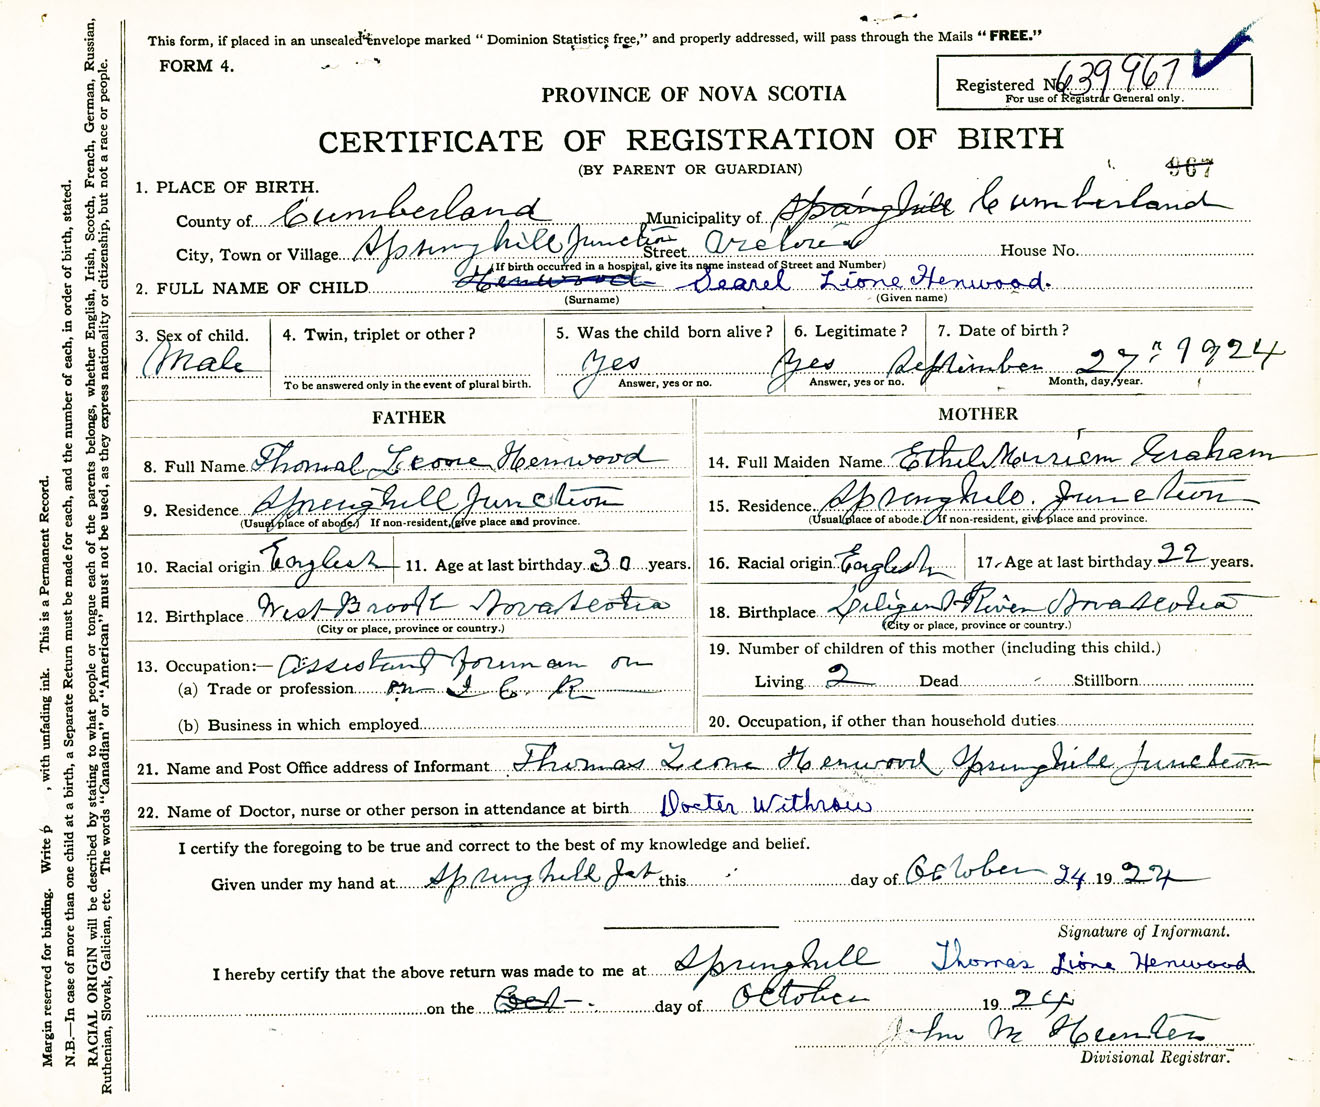 This form, if placed in an unsealed envelope marked " Dominion Statistics free," and properly addressed, will pass through the Mails " FREE."
FORM 4.
Registered No. 639967
For use of Registrar General only.
PROVINCE OF NOVA SCOTIA
CERTIFICATE OF REGISTRATION OF BIRTH
(BY PARENT OR GUARDIAN)
967
1. PLACE OF BIRTH.
County of Cumberland Municipality of Springhill Cumberland
City, Town or Village Springhill Junction Street House No.
(If birth occurred in a hospital, give its name instead of Street and Number)
2. FULL NAME OF CHILD Henwood Searel Lione Henwood.
(Surname) (Given name)
3. Sex of child. 4. Twin, triplet or other? 5. Was the child born alive? 6. Legitimate? 7. Date of birth?
Male Yes Yes September 27th 1924
To be answered only in the event of plural birth. Answer, yes or no. Answer, yes or no. Month, day, year.
FATHER
8. Full Name Thomas Leone Henwood
9. Residence Springhill Junction
(Usual place of abode.) If non-resident, give place and province.
10. Racial origin English 11. Age at last birthday 30 years.
12. Birthplace West Brook Nova Scotia
(City or place, province or country.)
13. Occupation:— assistant foreman on
(a) Trade or profession on I C R
(b) Business in which employed
MOTHER
14. Full Maiden Name Ethel Merriem Graham
15. Residence Springhill Junction
(Usual place of abode. If non-resident, give place and province.
16. Racial origin English 17. Age at last birthday 22 years.
18. Birthplace Diligent River Nova Scotia
(City or place, province or country.)
19. Number of children of this mother (including this child.)
Living 2 Dead Stillborn
20. Occupation, if other than household duties
21. Name and Post Office address of Informant Thomas Leone Henwood Springhill Junction
22. Name of Doctor, nurse or other person in attendance at birth Docter Withrow
I certify the foregoing to be true and correct to the best of my knowledge and belief.
Given under my hand at Springhill Jct this day of October 24 1924
Signature of Informant.
I hereby certify that the above return was made to me at Springhill Thomas Lione Henwood
on the Oct day of October 1924
John M Hunter
Divisional Registrar.
Margin reserved for binding. Write p , with unfading ink. This is a Permanent Record.
N.B.—In case of more than one child at a birth, a Separate Return must be made for each, and the number of each, in order of birth, stated.
RACIAL ORIGIN will be described by stating to what people or tongue each of the parents belongs, whether English, Irish, Scotch, French, German, Russian,
Ruthenian, Slovak, Galician, etc. The words "Canadian" or "American" must not be used, as they express nationality or citizenship, but not a race or people.